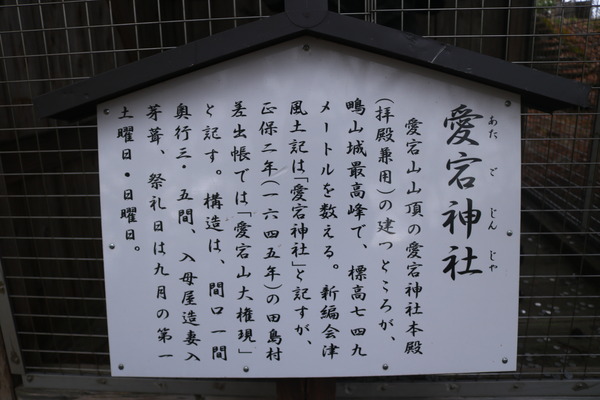 愛宕神社
あたごじんじゃ
愛宕山山頂の愛宕神社本殿
(拝殿兼用)の建つところが、
鴫山城最高峰で、標高七四九
メートルを数える。新編会津
風土記は「愛宕神社」と記すが、
正保二年(一六四五年)の田島村
差出帳では「愛宕山大権現」
と記す。構造は、間口一間
奥行三・五間、入母屋造妻入
茅葺、祭礼日は九月の第一
土曜日・日曜日。